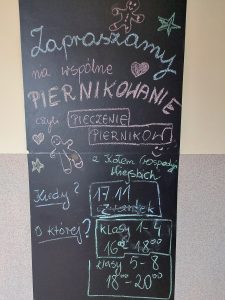 Zapraszamy
na wspólne
PIERNIKOWANIE
czyli PIECZENIE
PIERNIKÓW
z Kołem Gospodyń
Wiejskich
Kiedy? 17.11
czwartek
O której? klasy 1-4
16⁰⁰-18⁰⁰
klasy 5-8
18⁰⁰-20⁰⁰